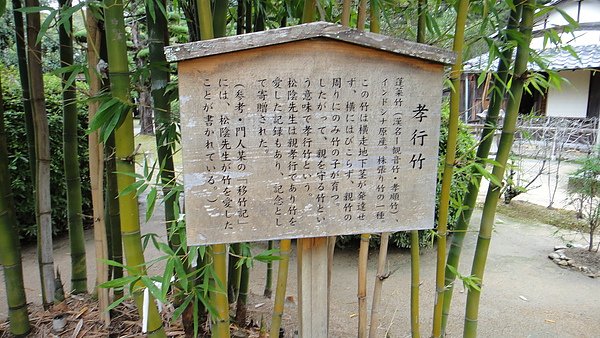 孝行竹
蓬莱竹(漢名・観音竹・孝順竹)
インドシナ原産・株張り竹の一種
この竹は横走地下茎が発達せ
ず、横にはびこらず、親竹の
周りにのみ竹の子が育つ。
したがって、親を守る竹とい
う意味で孝行竹という。
松陰先生は親孝行であり竹を
愛した記録もあり、記念とし
て寄贈された。
(参考・門人某の「移竹記」
には、松陰先生が竹を愛した
ことが書かれている。)